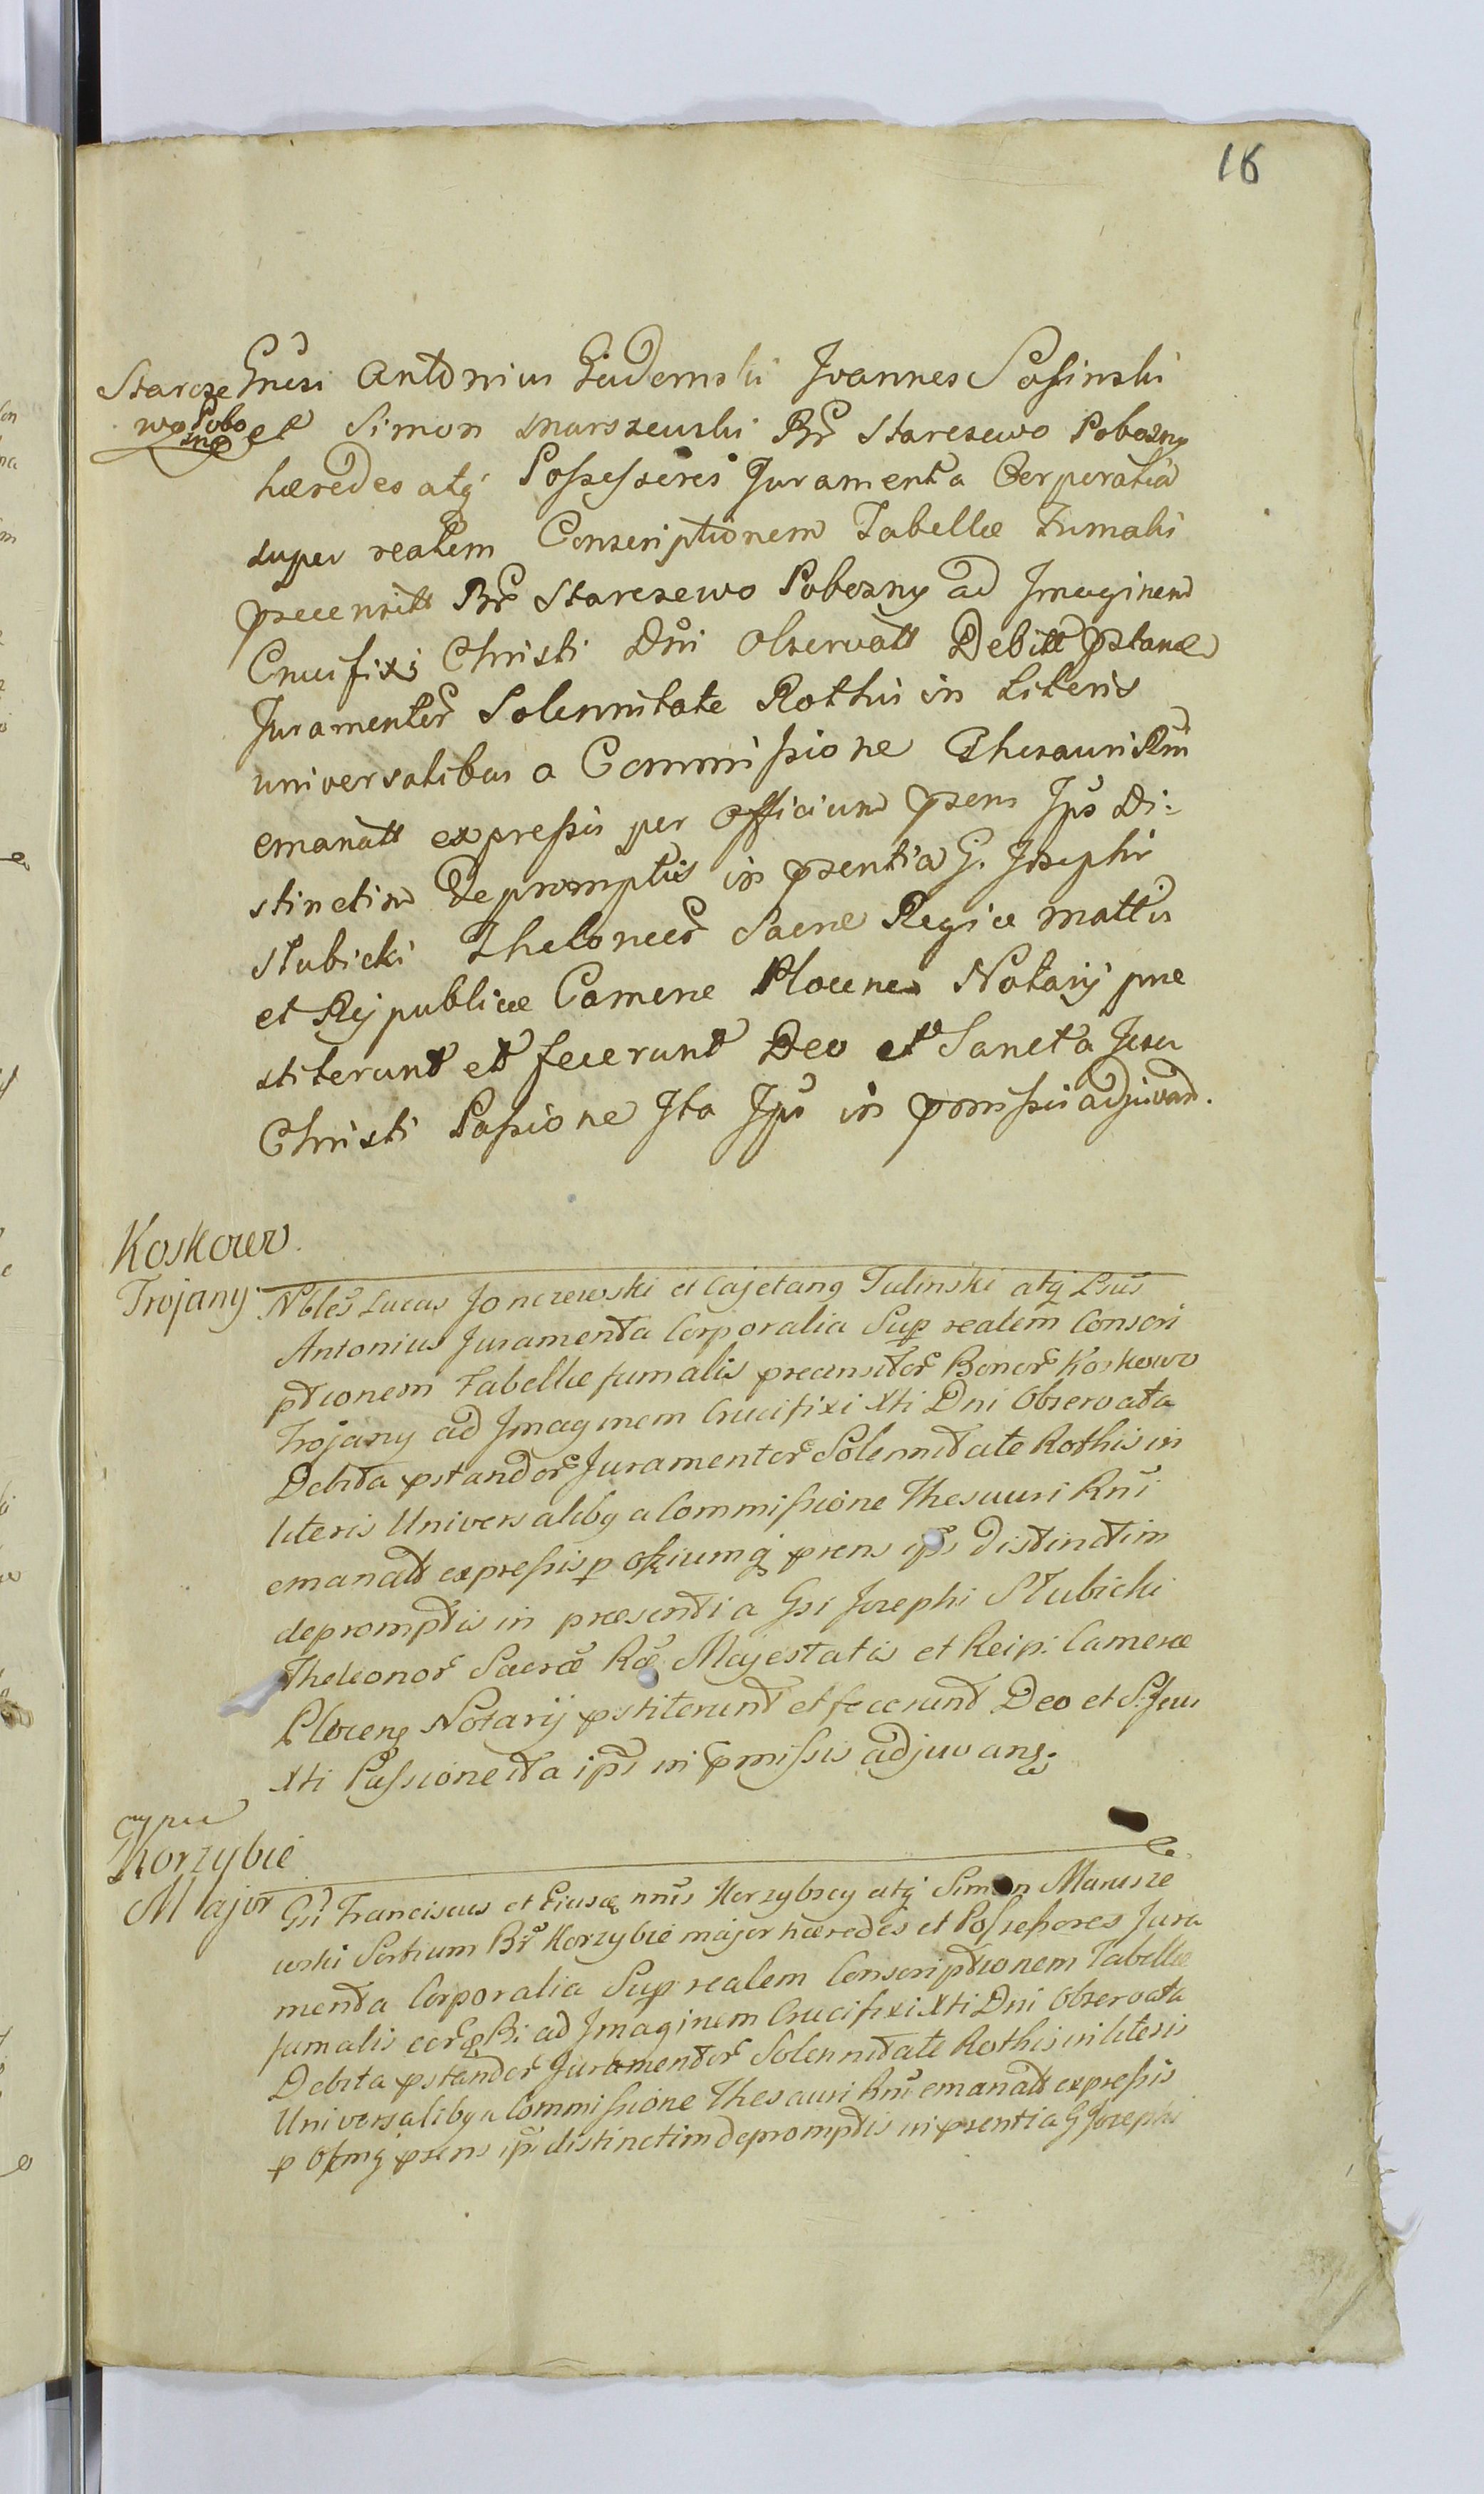 16
Starcze
wo Pobo
zne
Gnesi Antonius Ludemski Joannes Sassinski
et Simon Marszewski Br Starczewo Pobozny
hæredes atq Possessores Juramenta Corporalia
super realem Conscriptionem Tabellæ Fumalis
præcensitt Br Starczewo Pobozny ad Imaginem
Crucifixi Christi Dni Observatt Debitt pstand
Juramentor Solennitate Rothis in Literis
universalibus a Commissione Thesauri Rni
emanatt expressis per Officium psens Ips Di:
stinctim depromptis in psentia G. Josephi
Stubicki Theloneor Sacræ Regiæ Mattis
et Reypublicæ Cameræ Plocens Notarij præ
stiterunt et fecerunt Deo et Sancta Jesu
Christi Passione Ita Ips in pmissis adjuvand.
Koskowo
Trojany
Nbles Lucas Jonczewski et Cajetang Tulinski atq
Antonius Juramenta Corporalia Sup realem Conscri
ptionem Tabellæ fumalis præcensitor Bonor Koskowo
Trojany ad Imaginem Crucifixi Xti Dni Observata
Debita pstandor Juramentor Solennitate Rothis in
literis Universalibq a Commissione Thesauri Rni
emanatt expressis p offiumq psens ips distinctim
depromptis in præsentia Gsi Josephi Stubicki
Theleonor Sacræ Ræ Majestatis et Reip: Cameræ
Plocens Notarij pstiterunt et fecerunt Deo et S. Jesu
Xti Passione ita ips in pmissis adjuvans.
Korzybie
Major
Gsi Franciscus et Korzybscy atq Simon Marusze
wski Sortium Br Korzybie major hæredes et Possessores Jura
menta Corporalia Sup realem Conscriptionem Tabellæ
fumalis eor ad Imaginem Crucifixi Xti Dni Observata
Debita pstandor Juramentor Solennitate Rothis in literis
Universalibq a Commissione Thesauri Rni emanatt expressis
p Offmq psens ips distinctim depromptis in psentia G Josephi